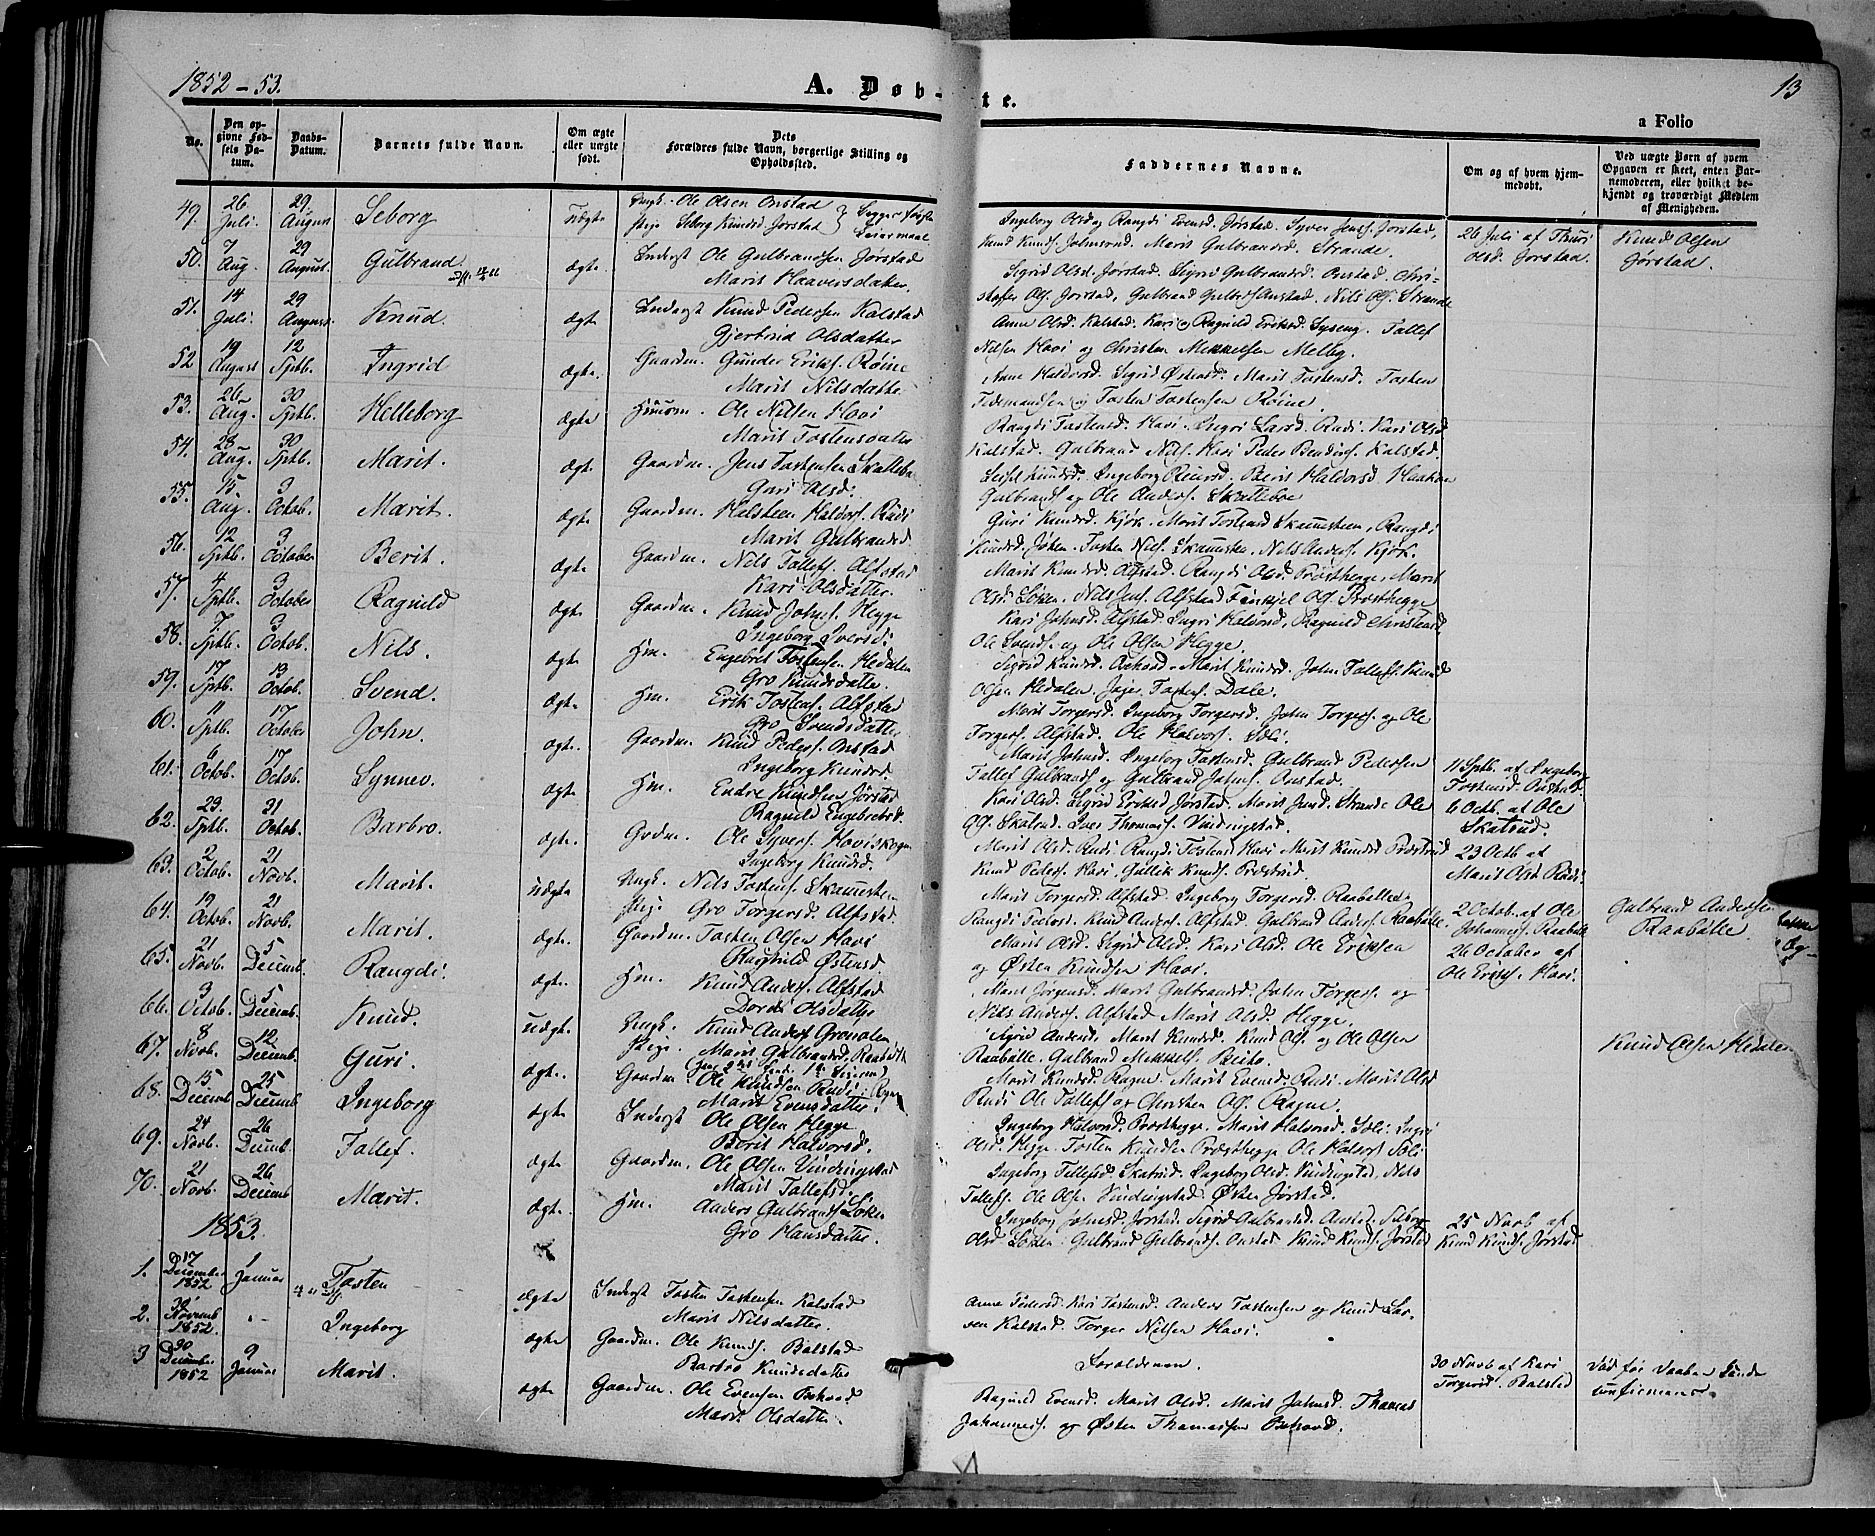 1852-53.
A. Døb-
te.
13
a Folio
No.
Den op-
givne Fød-
sels Da-
tum.
Daabs-
Datum.
Barnets fulde Navn.
Om ægte
eller uægte
født.
Dets
Forældres fulde Navn, borgerlige Stilling og
Opholdssted.
Faddernes Navne.
Om og af hvem hjem-
medøbt.
Ved uægte Børn af hvem
Opgaven er skeet, enten Bar-
nemoderen, eller hvilket be-
kjendt og troværdigt Medlem
af Menigheden.
49. 26 Juli. 29 August Seborg uægte Ungk. Ole Olsen Onstad
Pige Seborg Knudsd Jørstad
Ingeborg Olsd og Rangdi Evensd. Jørstad, Syver Jensf. Jørstad,
Knud Knudsf. Johnsrud. Marit Gulbrandsd. Strande.
26 Juli af Thuri
Olsd. Jørstad.
Knud Olsen
Jørstad.
50. 7 Aug. 29 August Gulbrand ægte Inderst Ole Gulbrandsen Jørstad
Marit Haaversdatter.
Sigrid Olsd. Jørstad, Sigri Gulbrandsd. Onstad, Chri-
stoffer Ols. Jørstad, Gulbrand Gulbrsf Onstad. Nils Ols. Strande
51. 14 Juli. 29 August. Knud. ægte Inderst Knud Pedersen Kalstad
Gjertrud Olsdatter
Anne Olsd. Kalstad. Kari og Ragnild Eriksd. Syseng. Tallef
Nilsen Havi og Christen Mikkelsen Melby.
52 19 August 12 Sptb. Ingrid ægte. Gaardm. Gunder Eriks. Røine
Marit Nilsdatter
Anne Haldorsd. Sigrid Østensd. Marit Tostensd. Tosten
Tidemandsen og Tosten Tostensen Røine.
53. 26 Aug. 30 Sptb. Helleborg ægte Huusm. Ole Nilsen Havi
Marit Tostensdatter
Rangdi Tostensd. Havi. Ingri Larsd. Rudi. Kari Olsd
Kalstad. Gulbrand Nils. Havi Peder Bendixs. Kalstad.
54. 28 Aug. 30 Sptb. Marit. ægte. Gaardm. Jens Tostensen Skattebo
Guri Olsd.
Ingeborg Berit Haldorsd Haakon
Gulbrands og Ole Anders. Skatteboe
55. 15 Aug. 3 Octob. Marit. ægte Gaardm. Halsteen Haldors. Rudi
Marit Gulbrandsd
Guri Knudsd. Kjøk. Marit Tostensd Skamsteen, Rangdi
Knudsd. Tosten Nils. Skamsten. Nils Anders. Kjøk.
56. 12 Sptb. 3 October Berit. ægte Gaardm. Nils Tollefs. Alfstad
Kari Olsdatter
Marit Knudsd Alfstad. Rangdi Olsd. Prøsthegge, Marit
Olsd. Løken. Nils Alfstad Ols. Prøsthegge
57. 4 Sptb. 3 October Ragnild ægte Gaardm. Knud Johns. Hegge
Ingeborg Iversd.
Kari Johnsd. Alfstad Ingri Halvorsd, Ragnild Christensd
Ole Svends. og Ole Olsen Hegge.
58. 7 Sptb. 3 Octob. Nils. ægte Hm. Engebret Tostensen Hedalen
Gro Knudsdatter.
Sigrid Knudsd. Marit Knudsd. John Tollefs. Knud
Olsen Hedalen. Tostens. Dale.
59. 17 Sptb. 13 Octob. Svend. ægte. Hm. Erik Tostens. Alfstad
Gro Svendsdatter
Marit Torgersd. Ingeborg Torgersd. John Torgers. og Ole
Torgers. Alfstad. Ole Halvors. Soli.
60. 11 Sptb. 17 October John. ægte. Gaardm. Knud Peders. Onstad
Ingeborg Knudsd.
Marit Johnsd. Ingeborg Tostensd. Gulbrand Pedersen
Tallef Gulbrands og Gulbrand Johns. Onstad.
11 Sptb. af Ingeborg
Tostensd. Onstad.
61. 6 Octob. 17 Octob. Synnev. ægte. Hm. Endre Knudsen Jørstad
Ragnild Engebretsd.
Kari Olsd. Sigrid Eriksd Jørstad. Marit Strande Ole
Ols. Skatrud. Iver Thomas. Vindingstad.
6 Octb. af Ole
Skatrud.
62. 23. Sptb. 31 Octob. Barbro. ægte. Ole Syvers. Haviskogen
Ingeborg Knudsd.
Marit Olsd. Rudi. Rangdi Tostensd Havi Marit Knudsd Prøstrud
Knud Peders. Havi. Gullik Knuds. Prøstrud.
23 Octb af
Marit Olsd Rudi.
63. 2 Octob. 21 Novb. Marit. uægte Ungk. Nils Tostens. Skamsten
Pige Gro Torgersd. Alfstad
Marit Torgersd. Alfstad, Ingeborg Torgersd. Raaballe,
Rangdi Knud Anders. Alfstad Gulbrand Anders. Raabølle.
2 Octob. af Ole
Johannes. Raabølle
Gulbrand Andersen
Raabølle.
64. 19 Octob. 21 Novb. Marit. ægte. Gaardm. Tosten Olsen Havi
Ragnild Østensd
Marit Olsd. Sigrid Olsd. Kari Olsd. Ole Eriksen
og Østen Knudsen Havi.
26 October af
Ole Eriks. Havi.
65. 21 Novb. 5 Decemb. Rangdi. ægte. Hm. Knud Anders. Alfstad
Dordi Olsdatter
Marit Jørgensd. Marit Gulbrandsd. John Torgers. og
Nils Anders. Alfstad Marit Olsd. Hegge.
66. 3 Octob. 5 Decemb. Knud. uægt. Ungk. Knud Anders Grønolen
Pige. Marit Gulbrandsd. Raabølle
Sigrid Andersd. Marit Knudsd. Knud Ols. og Ole Olsen
Raabølle. Gulbrand Mikkels. Beito.
Knud Olsen Hedalen
67. 8 Novb. 12 Decemb. Guri. ægte. Gaardm. Ole Knudsen Rudi
Marit Evensdatter.
Marit Knudsd. Ragne. Marit Evensd. Rudi. Marit Olsd
Rudi Ole Tollefs og Christen Ols. Ragne.
68. 15 Decemb 25 Decemb Ingeborg ægte Inderst Ole Olsen Hegge
Berit Halvorsd.
Ingeborg Halvorsd. Prøsthegge. Marit Halvorsd. Soli. Ingri
Olsd. Hegge. Tosten Knudsen Prøsthegge Ole Halvors Soli
69. 24 Novb. 26 Decemb. Tallef. ægte Gaardm. Ole Olsen Vindingstad
Marit Tallefsd.
Ingeborg Tollefsd Skatrud. Ingeborg Olsd. Vindingstad, Nils
Tallefs. Ole Ols. Vindingstad. Østen Jørstad.
70. 21 Novb. 26 Decemb Marit. ægte. Hm. Anders Gulbrands Løken
Gro Hansdatter.
Ingeborg Johnsd. Jørstad. Sigrid Gulbrandsd. Onstad. Seborg
Olsd Løken. Gulbrand Gulbrands. Onstad Knud Knuds. Jørstad
25 Novb af
Knud Knuds. Jørstad
1853.
1. 17 December 1852 1 Januar Tosten ægte Inderst Tosten Tostensen Kalstad
Marit Nilsdatter.
Anne Pedersd. Kari Tostensd. Anders Tostensen og Knud Lar-
sen Kalstad. Torger Nilsen Havi.
2. 30 Novemb 1852. Ingeborg ægte Gaardm. Ole Knuds. Balstad
Barbro Knudsdatter
Forældrene.
30 Novb af Kari
Torgersd. Balstad
Død før Daaben kunde
confirmeres.
3 30 December 1852 9 Januar Marit. ægte Gaardm. Ole Evensen
Marit Olsdatter.
Ragnild Evensd. Marit Olsd. Marit Johnsd. Thomas
Johannes. og Østen Thomassen